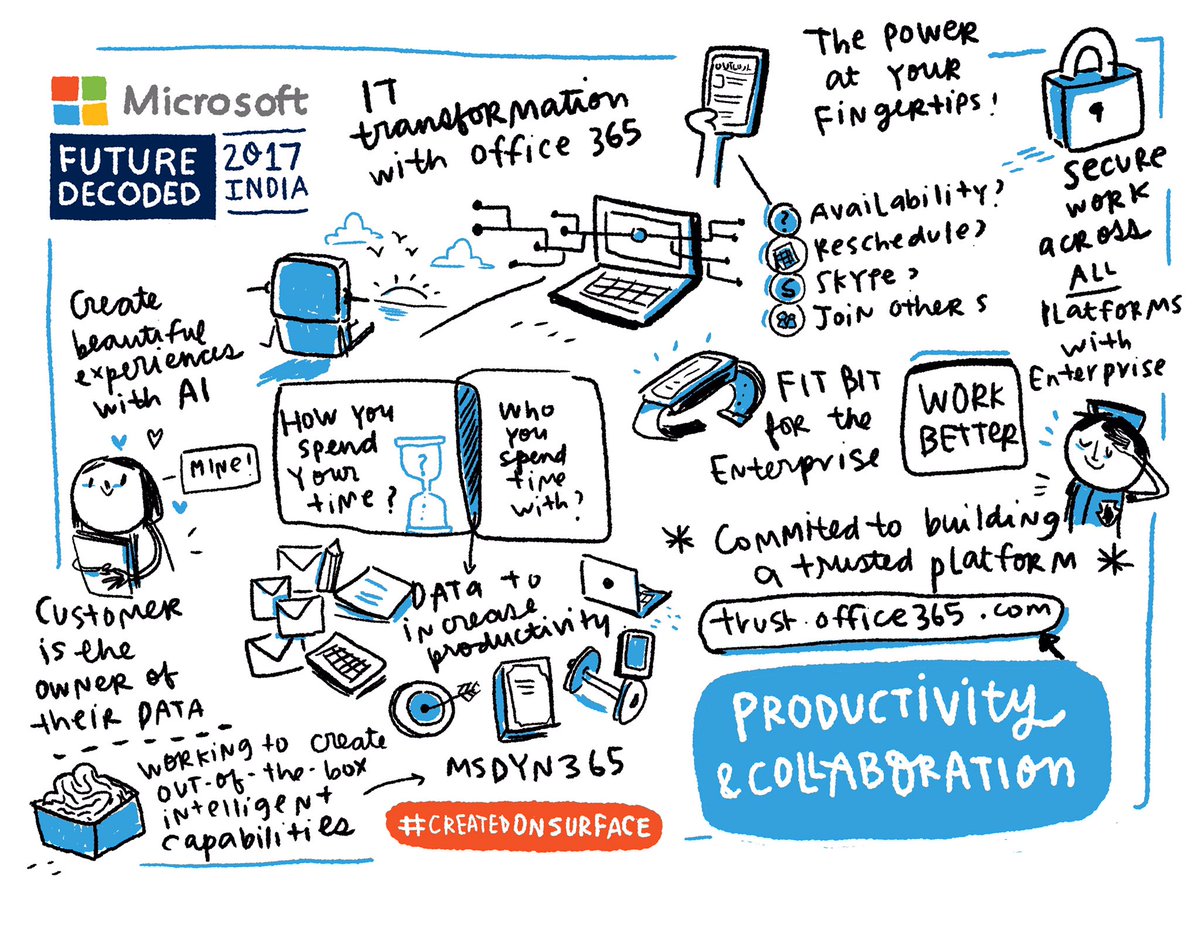 Microsoft
FUTURE
DECODED
2017
INDIA
IT
transformation
with office 365
OUTLOOK
The power
at your
fingertips!
Availability?
Reschedule?
S
Skype?
Join others
Secure
work
across
ALL
platforms
with
Enterprise
Create
beautiful
experiences
with AI
MINE!
How you
spend
your
time?
?
Who
you
spend
time
with?
FIT BIT
for the
Enterprise
WORK
BETTER
* Commited to building
a trusted platform *
trust.office365.com
DATA to
increase
productivity
Customer
is the
owner of
their DATA
Working to create
out-of-the-box
intelligent
capabilities
MSDYN365
#CREATEDONSURFACE
PRODUCTIVITY
& COLLABORATION